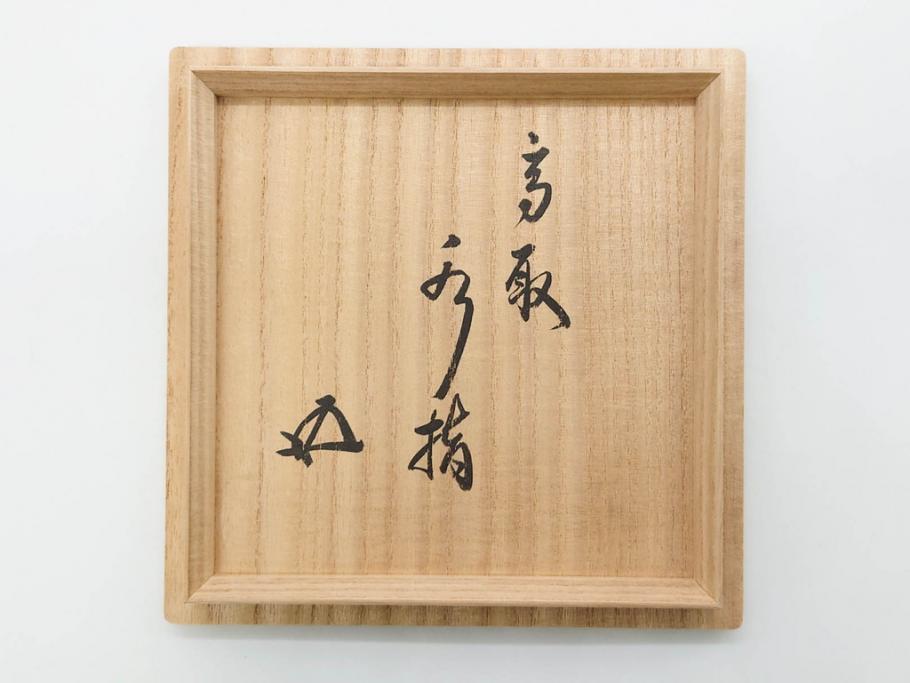 高取
水指